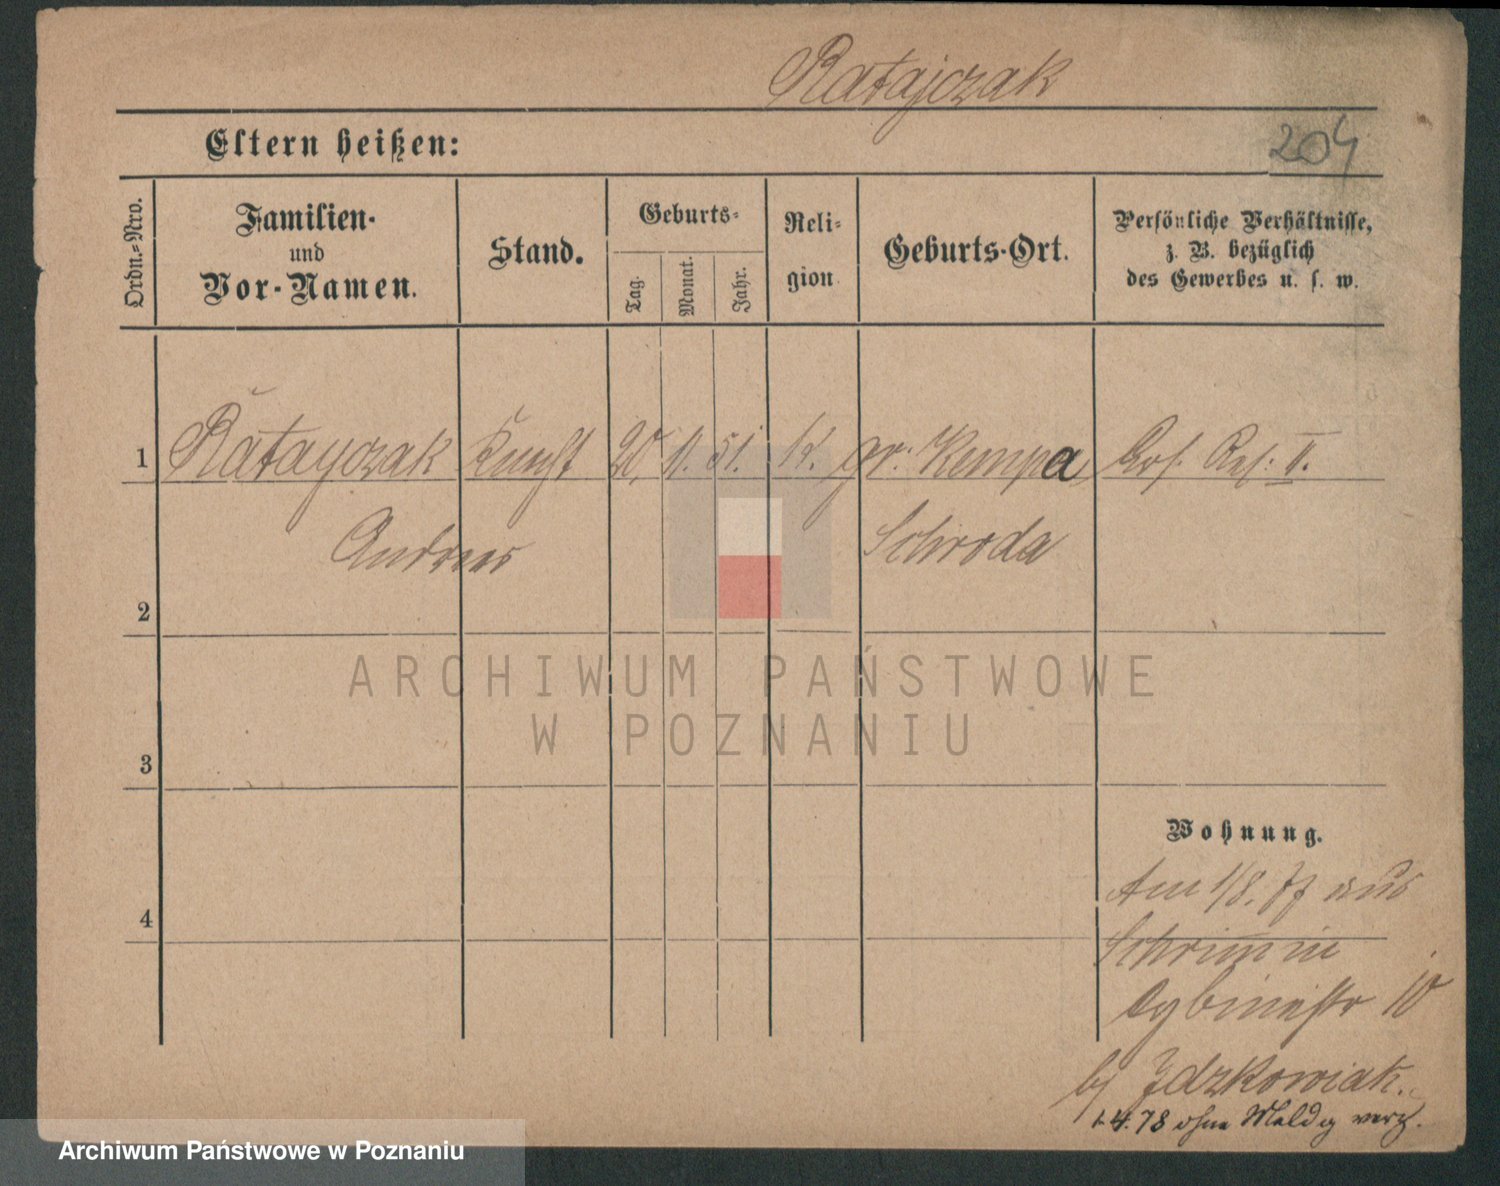 Ratajczak
Eltern heißen:
204
Ordn.-Nro.
Familien-
und
Vor-Namen.
Stand.
Geburts-
Tag.
Monat.
Jahr.
Reli-
gion
Geburts-Ort.
Persönliche Verhältnisse,
z. B. bezüglich
des Gewerbes u. s. w.
1 Ratayczak Knecht 20. 11. 51. k. gr. Kempa, Ers. Res. II.
Andreas Schroda
2
3
4
Wohnung.
Am 1/8. 77 aus
Schrimm in
10
bj Idzkowiak.
1.4.78 ohne Meldg verz.
ARCHIWUM PAŃSTWOWE
W POZNANIU
Archiwum Państwowe w Poznaniu